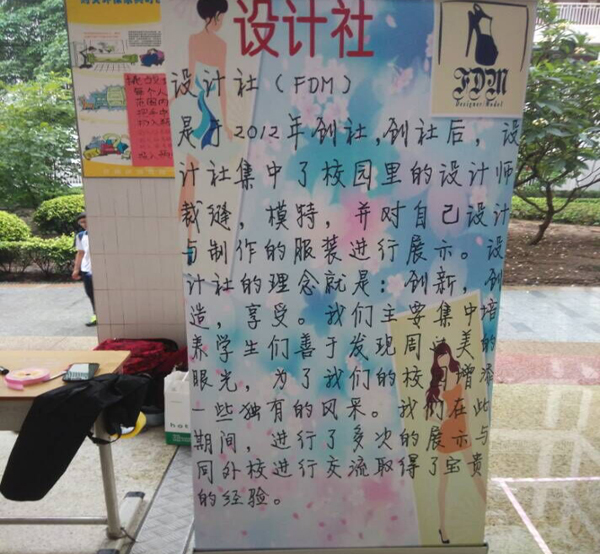 设计社
FDM
Designer Model
设计社（FDM）
是于2012年创社,创社后，设
计社集中了校园里的设计师
裁缝，模特，并对自己设计
与制作的服装进行展示。设
计社的理念就是：创新，创
造，享受。我们主要集中培
养学生们善于发现周边美的
眼光，为了我们的校园增添
一些独有的风采。我们在此
期间，进行了多次的展示与
同外校进行交流取得了宝贵
的经验。